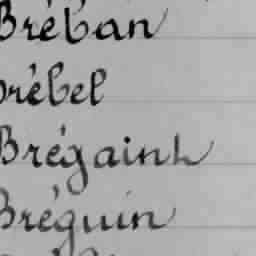 Bréban
Brébel
Brégaint
Bréguin